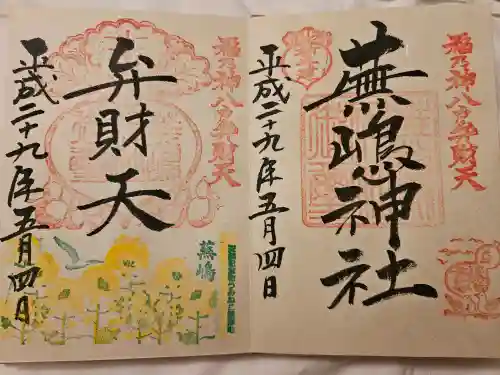 福乃神八戸弁財天
蕪嶋神社
平成二十九年五月四日
福乃神八戸弁財天
弁財天
平成二十九年五月四日
蕪嶋